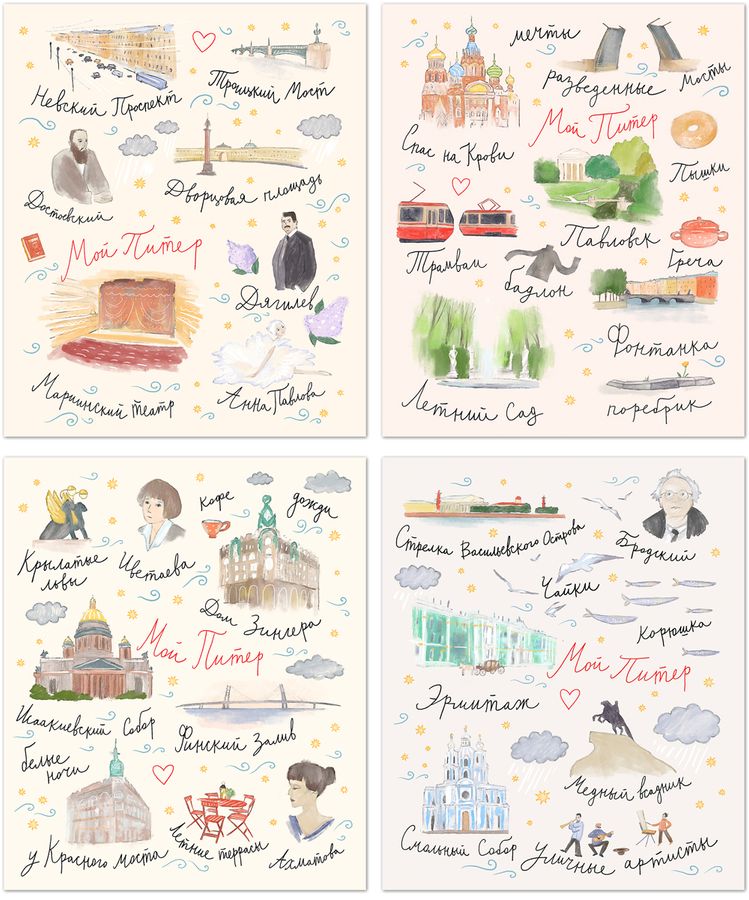 Невский Проспект
Троицкий Мост
Достоевский
Дворцовая площадь
Мой Питер
Дягилев
Мариинский театр
Анна Павлова
мечты
разведенные
Мосты
Спас на Крови
Мой Питер
Пышки
Трамваи
Павловск
Греча
бадлон
Фонтанка
Летний Сад
поребрик
Крылатые
львы
Цветаева
кофе
дожди
Дом Зингера
Мой Питер
Исаакиевский Собор
Финский Залив
белые
ночи
у Красного моста
Летние террасы
Ахматова
Стрелка Васильевского Острова
Бродский
Чайки
Корюшка
Мой Питер
Эрмитаж
Медный всадник
Смольный Собор
Уличные артисты